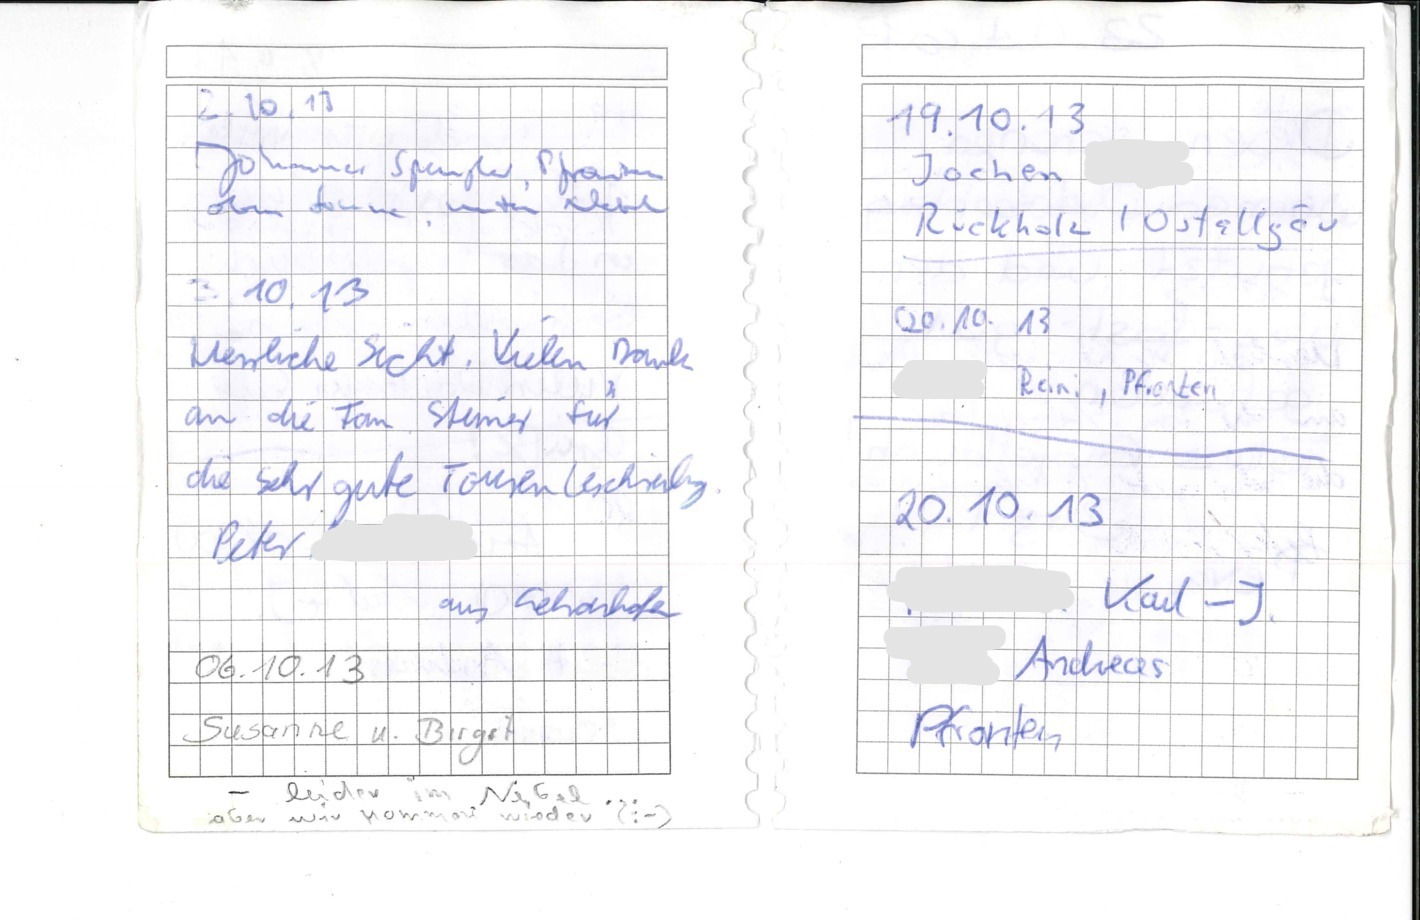 2.10.13
Johannes Spengler, Pfronten
oben Sonne, unten Nebel
3.10.13
Herrliche Sicht. Vielen Dank
an die Fam Steiner für
die sehr gute Tourenbeschreibg.
Peter
aus
06.10.13
Susanne u. Birgit
- leider im Nebel ...
aber wir kommen wieder (:-)
19.10.13
Jochen
Rückholz / Ostallgäu
20.10.13
Reini, Pfronten
20.10.13
Karl-J.
Andreas
Pfronten